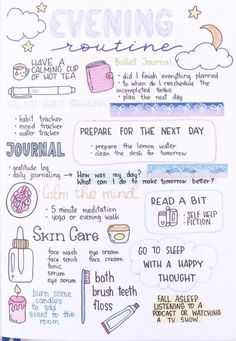 EVENING
routine
HAVE A
CALMING CUP
OF HOT TEA
Bullet Journal
• did I finish everything planned
• to when do I reschedule the
incompleted tasks
• plan the next day
FILL OUT HABIT TRACKERS
• habit tracker
• mood tracker
• water tracker
PREPARE FOR THE NEXT DAY
• prepare the lemon water
• clean the desk for tomorrow
JOURNAL
• gratitude log
• daily journaling → How was my day?
What can I do to make tomorrow better?
Calm the mind
• 5 minute meditation
• yoga or evening walk
READ A BIT
SELF HELP
FICTION
Skin Care
face wash
face scrub
tonic
serum
eye serum
eye cream
face cream
GO TO SLEEP
WITH A HAPPY
THOUGHT
burn some
candles
to add
scent to the
room
bath
brush teeth
floss
FALL ASLEEP
LISTENING TO A
PODCAST OR WATCHING
A TV SHOW